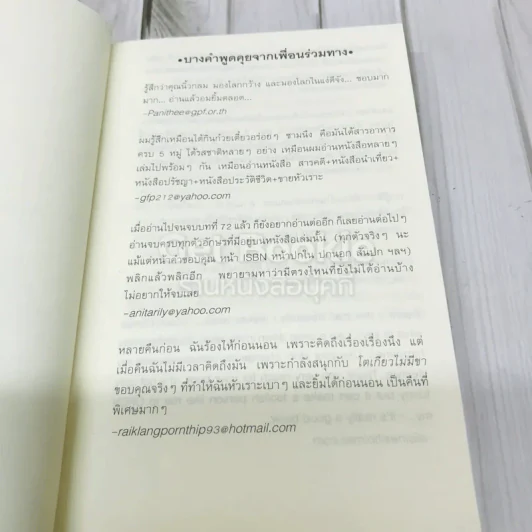 •บางคำพูดคุยจากเพื่อนร่วมทาง•
รู้สึกว่าคุณนิ้วกลม มองโลกกว้าง และมองโลกในแง่ดีจัง... ชอบมาก
มาก... อ่านแล้วอมยิ้มตลอด...
–Panithee@gpf.or.th
ผมรู้สึกเหมือนได้กินก๋วยเตี๋ยวอร่อยๆ ชามนึง คือมันได้สารอาหาร
ครบ 5 หมู่ ได้รสชาติหลายๆ อย่าง เหมือนผมอ่านหนังสือหลายๆ
เล่มไปพร้อมๆ กัน เหมือนอ่านหนังสือ สารคดี+หนังสือนำเที่ยว+
หนังสือปรัชญา+หนังสือประวัติชีวิต+ขายหัวเราะ
–gfp212@yahoo.com
เมื่ออ่านไปจนจบบทที่ 72 แล้ว ก็ยังอยากอ่านต่ออีก ก็เลยอ่านต่อไปๆ
อ่านจนครบทุกตัวอักษรที่มีอยู่บนหนังสือเล่มนั้น (ทุกตัวจริงๆ นะ
แม้แต่หน้าคำขอบคุณ หน้า ISBN หน้าปกใน ปกนอก สันปก ฯลฯ)
พลิกแล้วพลิกอีก พยายามหาว่ามีตรงไหนที่ยังไม่ได้อ่านบ้าง
ไม่อยากให้จบเลย
–anitarily@yahoo.com
ร้านหนังสือบุคกี้
หลายคืนก่อน ฉันร้องไห้ก่อนนอน เพราะคิดถึงเรื่องเรื่องนึง แต่
เมื่อคืนฉันไม่มีเวลาคิดถึงมัน เพราะกำลังสนุกกับ โตเกียวไม่มีขา
ขอบคุณจริงๆ ที่ทำให้ฉันหัวเราะเบาๆ และยิ้มได้ก่อนนอน เป็นคืนที่
พิเศษมากๆ
–raiklangpornthip93@hotmail.com